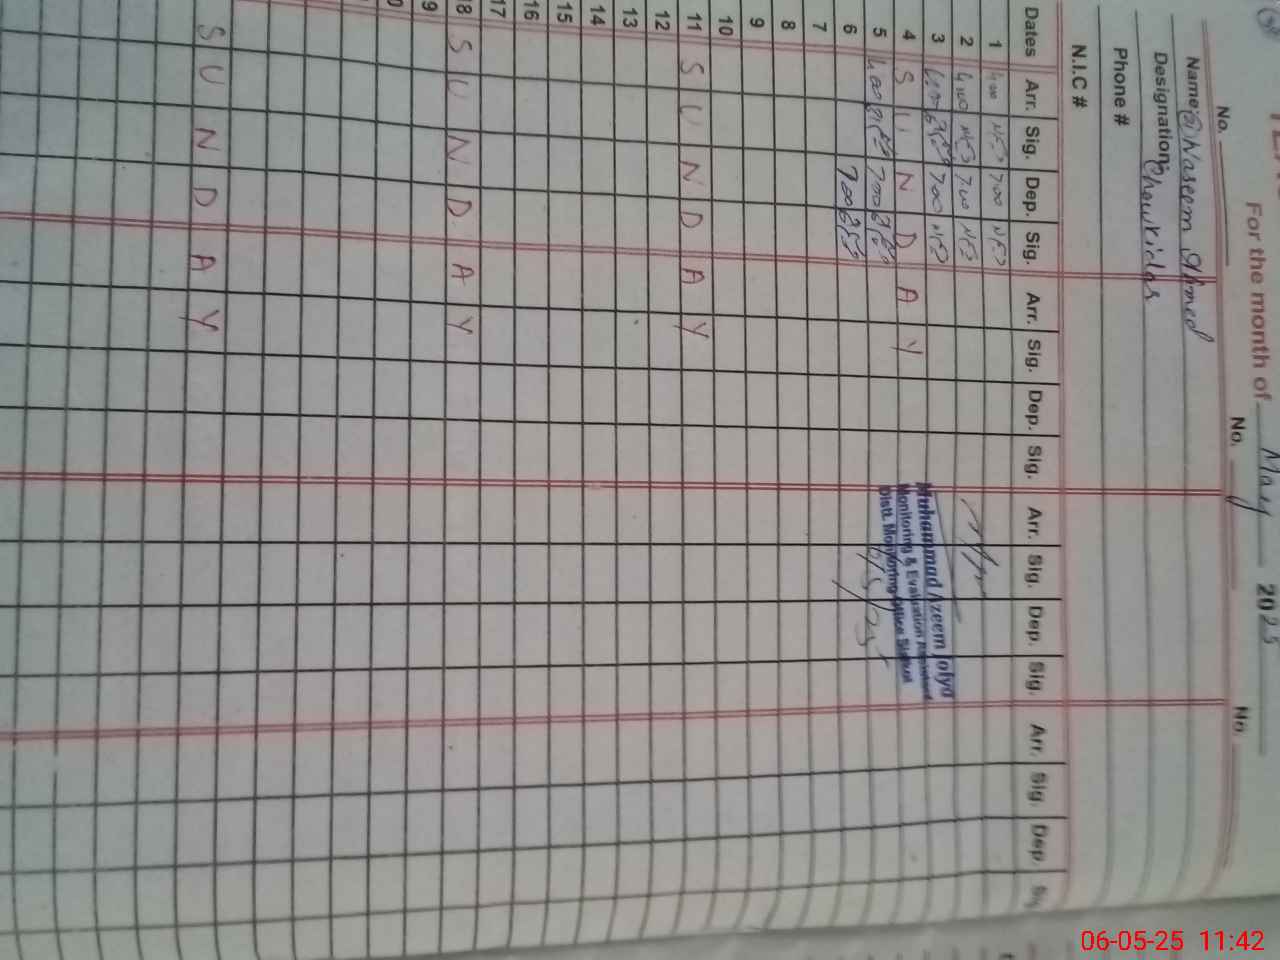 For the month of May 2025
No. No. No.
Name: Naseem Ahmed
Designation: Chowkidar
Phone #
N.I.C #
Dates Arr. Sig. Dep. Sig. Arr. Sig. Dep. Sig. Arr. Sig. Dep. Sig. Arr. Sig. Dep. Sig
1 4:00 7:00
2 4:00 7:00
3 4:00 700
4 SUNDAY
5 400 700
6 700
7
8
9
10
11 SUNDAY
12
13
14
15
16
17
18 SUNDAY
9
0
SUNDAY
Muhammad Azeem Jotyo
Monitoring & Evaluation Assistant
Distt. Monitoring Office
6/5/25
06-05-25 11:42